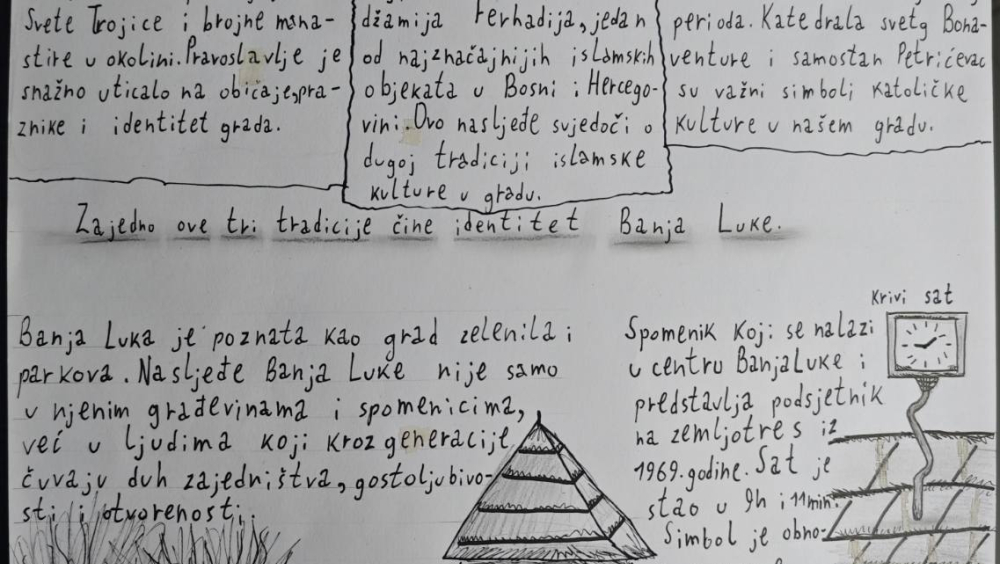 Svete Trojice i brojne mana-
stire u okolini. Pravoslavlje je
snažno uticalo na običaje, pra-
znike i identitet grada.
džamija Ferhadija, jedan
od najznačajnijih islamskih
objekata u Bosni i Hercego-
vini. Ovo nasljeđe svjedoči o
dugoj tradiciji islamske
kulture u gradu.
perioda. Katedrala svetg Bona-
venture i samostan Petrićevac
su važni simboli katoličke
kulture u našem gradu.
Zajedno ove tri tradicije čine identitet Banja Luke.
Banja Luka je poznata kao grad zelenila i
parkova. Nasljeđe Banja Luke nije samo
u njenim građevinama i spomenicima,
već u ljudima koji kroz generacije
čuvaju duh zajedništva, gostoljubivo-
sti i otvorenosti.
Krivi sat
Spomenik koji se nalazi
u centru Banja Luke i
predstavlja podsjetnik
na zemljotres iz
1969. godine. Sat je
stao u 9h i 11min.
Simbol je obno-